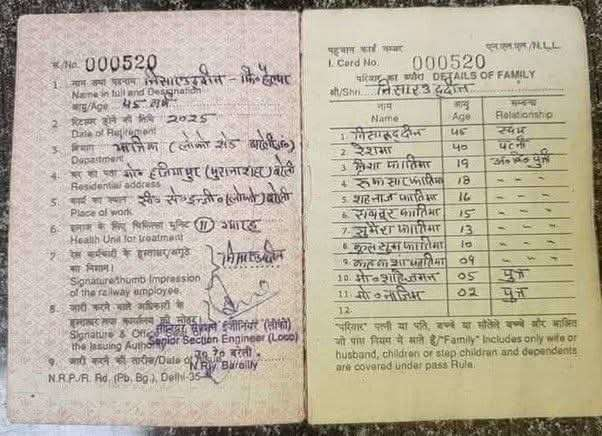 सं./No. 000520
1. नाम तथा पदनाम निसारउद्दीन - फि० हैल्पर
Name in full and Designation
आयु/Age 45 वर्ष
2. रिटायर होने की तिथि 2025
Date of Retirement
3. विभाग
Department
4. घर का पता
Residential address
5. कार्य का स्थान
Place of work
6. इलाज के लिए चिकित्सा यूनिट II
Health Unit for treatment
7. रेल कर्मचारी के हस्ताक्षर/अंगूठे
का निशान।
Signature/thumb Impression
of the railway employee.
8. जारी करने वाले अधिकारी के
हस्ताक्षर तथा कार्यालय की मोहर।
Signature &
the Issuing
सीनियर सेक्शन इंजीनियर (लोको)
Senior Section Engineer (Loco)
उ० रे० बरेली
N.Rly. Bareilly
9. जारी करने की तारीख/Date of
N.R.P./R. Rd. (Pb. Bg.), Delhi-35
पहचान कार्ड नम्बर एन.एल.एल./N.L.L.
I. Card No. 000520
परिवार का ब्यौरा DETAILS OF FAMILY
श्री/Shri निसारउद्दीन
नाम आयु सम्बन्ध
Name Age Relationship
1. निसारउद्दीन 45 स्वयं
2. रेशमा 40 पत्नी
3. निशा फातिमा 19 अ० वि० पुत्री
4. रुकसार फातिमा 18 - - -
5. शहनाज फातिमा 16 - - -
6. फातिमा 15 - - -
7. सुमेरा फातिमा 13 - - -
8. कुलसूम फातिमा 10 - - -
9. कहकशा फातिमा 09 - - -
10. मो० 05 पुत्र
11. मो० नाजिम 02 पुत्र
12.
"परिवार" पत्नी या पति, बच्चे या सौतेले बच्चे और आश्रित
जो पास नियम में आते हैं/"Family" Includes only wife or
husband, children or step children and dependents
are covered under pass Rule.